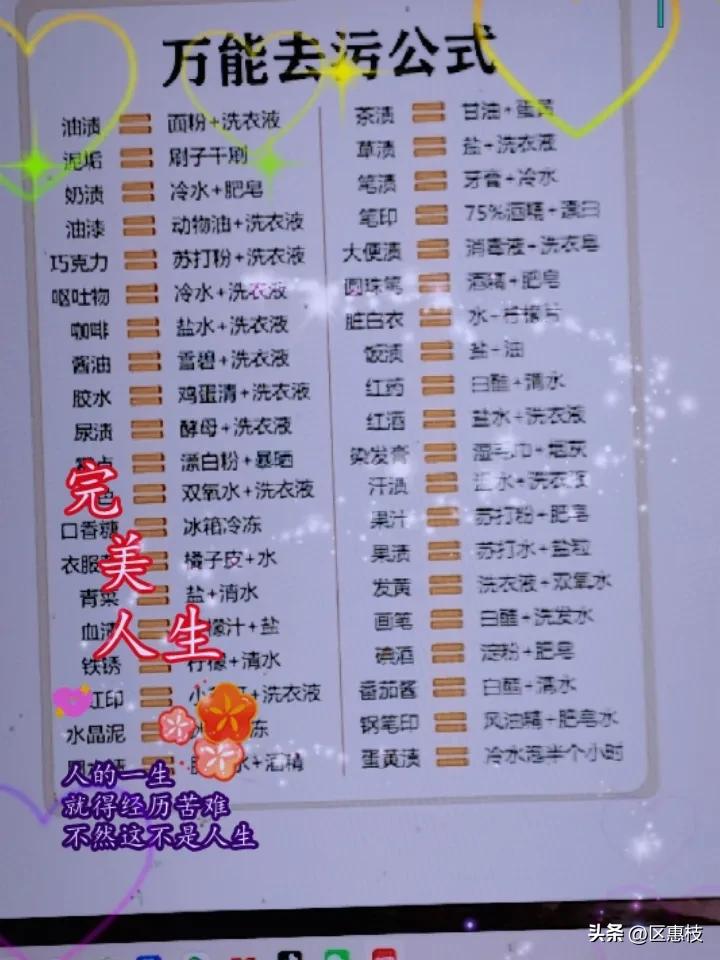 万能去污公式
油渍 面粉+洗衣液
泥垢 刷子干刷
奶渍 冷水+肥皂
油漆 动物油+洗衣液
巧克力 苏打粉+洗衣液
呕吐物 冷水+洗衣液
咖啡 盐水+洗衣液
酱油 雪碧+洗衣液
胶水 鸡蛋清+洗衣液
尿渍 酵母+洗衣液
漂白粉+暴晒
双氧水+洗衣液
口香糖 冰箱冷冻
衣服 橘子皮+水
青菜 盐+清水
血渍 檬汁+盐
铁锈 柠檬+清水
红印 洗衣液
水晶泥 冻
水+酒精
茶渍 甘油+蛋黄
草渍 盐+洗衣液
笔渍 牙膏+冷水
笔印 75%酒精+漂白
大便渍 消毒液+洗衣皂
圆珠笔 酒精+肥皂
脏白衣 水+柠檬片
饭渍 盐+油
红药 白醋+清水
红酒 盐水+洗衣液
染发膏 湿毛巾+烟灰
汗渍 水+洗衣液
果汁 苏打粉+肥皂
果渍 苏打水+盐粒
发黄 洗衣液+双氧水
画笔 白醋+洗发水
碘酒 淀粉+肥皂
番茄酱 白醋+清水
钢笔印 风油精+肥皂水
蛋黄渍 冷水泡半个小时
完美人生
人的一生
就得经历苦难
不然这不是人生
头条 @区惠枝